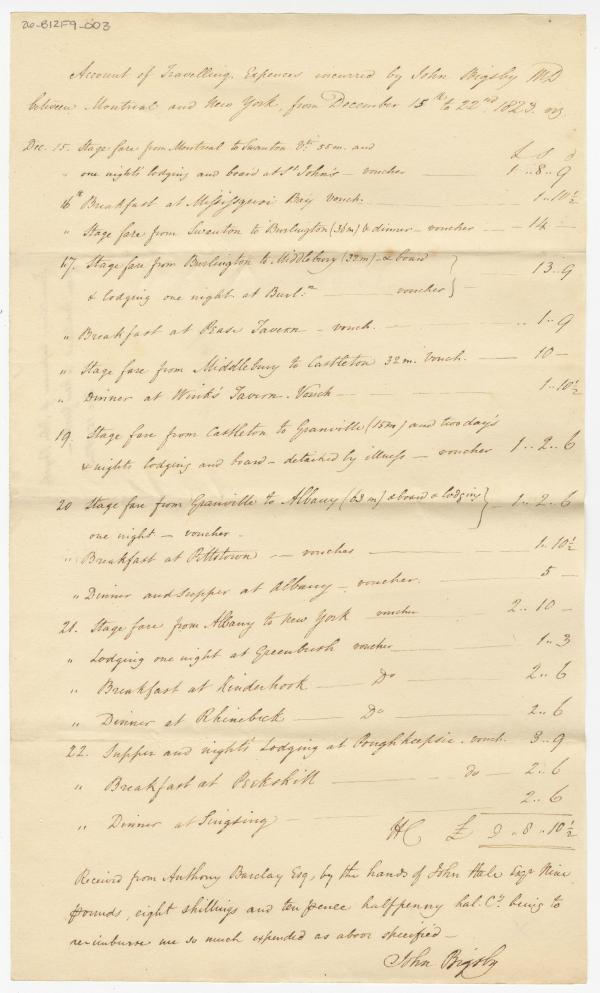 26-B12F9-003
Account of Travelling Expences incurred by John Bigsby MD
between Montreal and New York, from December 15th to 22nd 1823. viz
£ s d
Dec. 15. Stage fare from Montreal to Swanton Vt. 55 m. and
" one nights lodging and board at St John's - voucher 1 .. 8 .. 9
16th Breakfast at Missisquoi Bay vouch. 1 .. 10½
" Stage fare from Swanton to Burlington (36m) & dinner - voucher - 14 -
17. Stage fare from Burlington to Middlebury (32m) - & board
& lodging one night at Burl.n voucher } - 13 .. 9
" Breakfast at Pease Tavern - vouch. .. 1 .. 9
" Stage fare from Middlebury to Castleton 32 m. vouch. 10 -
" Dinner at Wink's Tavern. Vouch 1 .. 10½
19. Stage fare from Castleton to Granville (15m) and two day's
& nights lodging and board - detached by illness - voucher 1 .. 2 .. 6
20 Stage fare from Granville to Albany (63 m) & board & lodging } - 1 .. 2 .. 6
one night - voucher -
" Breakfast at Pittstown - voucher 1 .. 10½
" Dinner and supper at Albany - voucher. 5 -
21. Stage fare from Albany to New York voucher 2 .. 10 -
" Lodging one night at Greenbush voucher 1 .. 3
" Breakfast at Kinderhook - Do - 2 .. 6
" Dinner at Rhinebeck - Do 2 .. 6
22. Supper and night's Lodging at Poughkeepsie. vouch. 3 .. 9
" Breakfast at Peekskill - do - 2 .. 6
" Dinner at Singsing - 2 .. 6
HC £ 9 .. 8 .. 10½
Received from Anthony Barclay Esq, by the hands of John Hale Esqr Nine
Pounds, eight shillings and ten pence halfpenny hal. Cy. being to
re-imburse me so much expended as above specified -
John Bigsby